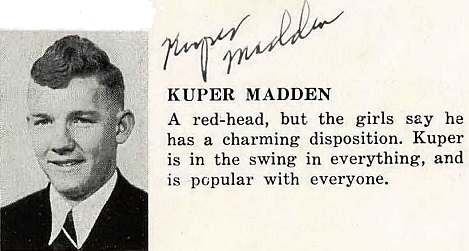 Kuper
Madden
KUPER MADDEN
A red-head, but the girls say he
has a charming disposition. Kuper
is in the swing in everything, and
is popular with everyone.